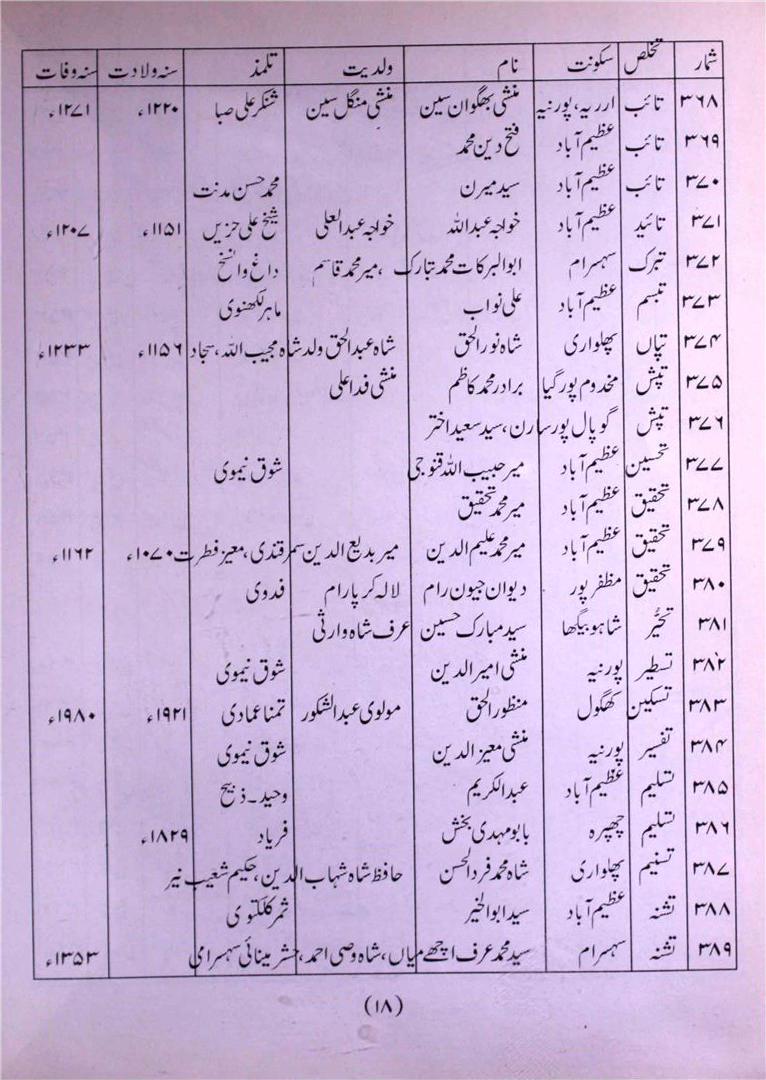 شمار تخلص سکونت نام ولدیت تلمذ سنہ ولادت سنہ وفات
۳۶۸ تائب ارریہ، پورنیہ منشی بھگوان سین منشی منگل سین شنکر علی صبا ۱۲۲۰ء ۱۲۷۱ء
۳۶۹ تائب عظیم آباد فتح دین محمد
۳۷۰ تائب عظیم آباد سید میرن محمد حسن مدنت
۳۷۱ تائید عظیم آباد خواجہ عبداللہ خواجہ عبدالعلی شیخ علی حزیں ۱۱۵۱ء ۱۲۰۷ء
۳۷۲ تبرک سہسرام ابوالبرکات محمد تبارک، میر محمد قاسم داغ و ناسخ
۳۷۳ تبسم عظیم آباد علی نواب ماہر لکھنوی
۳۷۴ تپاں پھلواری شاہ نورالحق شاہ عبدالحق ولد شاہ مجیب اللہ، سجاد ۱۱۵۶ء ۱۲۳۳ء
۳۷۵ تپش مخدوم پور گیا برادر محمد کاظم منشی فدا علی
۳۷۶ تپش گوپال پور سارن، سید سعید اختر
۳۷۷ تحسین عظیم آباد میر حبیب اللہ قنوجی شوق نیموی
۳۷۸ تحقیق عظیم آباد میر محمد تحقیق
۳۷۹ تحقیق عظیم آباد میر محمد علیم الدین میر بدیع الدین سمرقندی، معیز فطرت ۱۰۷۰ء ۱۱۶۲ء
۳۸۰ تحقیق مظفر پور دیوان جیون رام لالہ کرپا رام فدوی
۳۸۱ تحیُّر شاہو بیگھا سید مبارک حسین عرف شاہ وارثی
۳۸۲ تسطیر پورنیہ منشی امیر الدین شوق نیموی
۳۸۳ تسکین کھگول منظور الحق مولوی عبدالشکور تمنا عمادی ۱۹۲۱ء ۱۹۸۰ء
۳۸۴ تفسیر پورنیہ منشی معیز الدین شوق نیموی
۳۸۵ تسلیم عظیم آباد عبدالکریم وحید۔ ذبیح
۳۸۶ تسلیم چھپرہ بابو مہدی بخش فریاد ۱۸۲۹ء
۳۸۷ تسنیم پھلواری شاہ محمد فرد الحسن حافظ شاہ شہاب الدین، حکیم شعیب نیر
۳۸۸ تشنہ عظیم آباد سید ابوالخیر ثمر کلکتوی
۳۸۹ تشنہ سہسرام سید محمد عرف اچھے میاں، شاہ وصی احمد، حشر مینائی سہسرامی ۱۳۵۳ء
(۱۸)